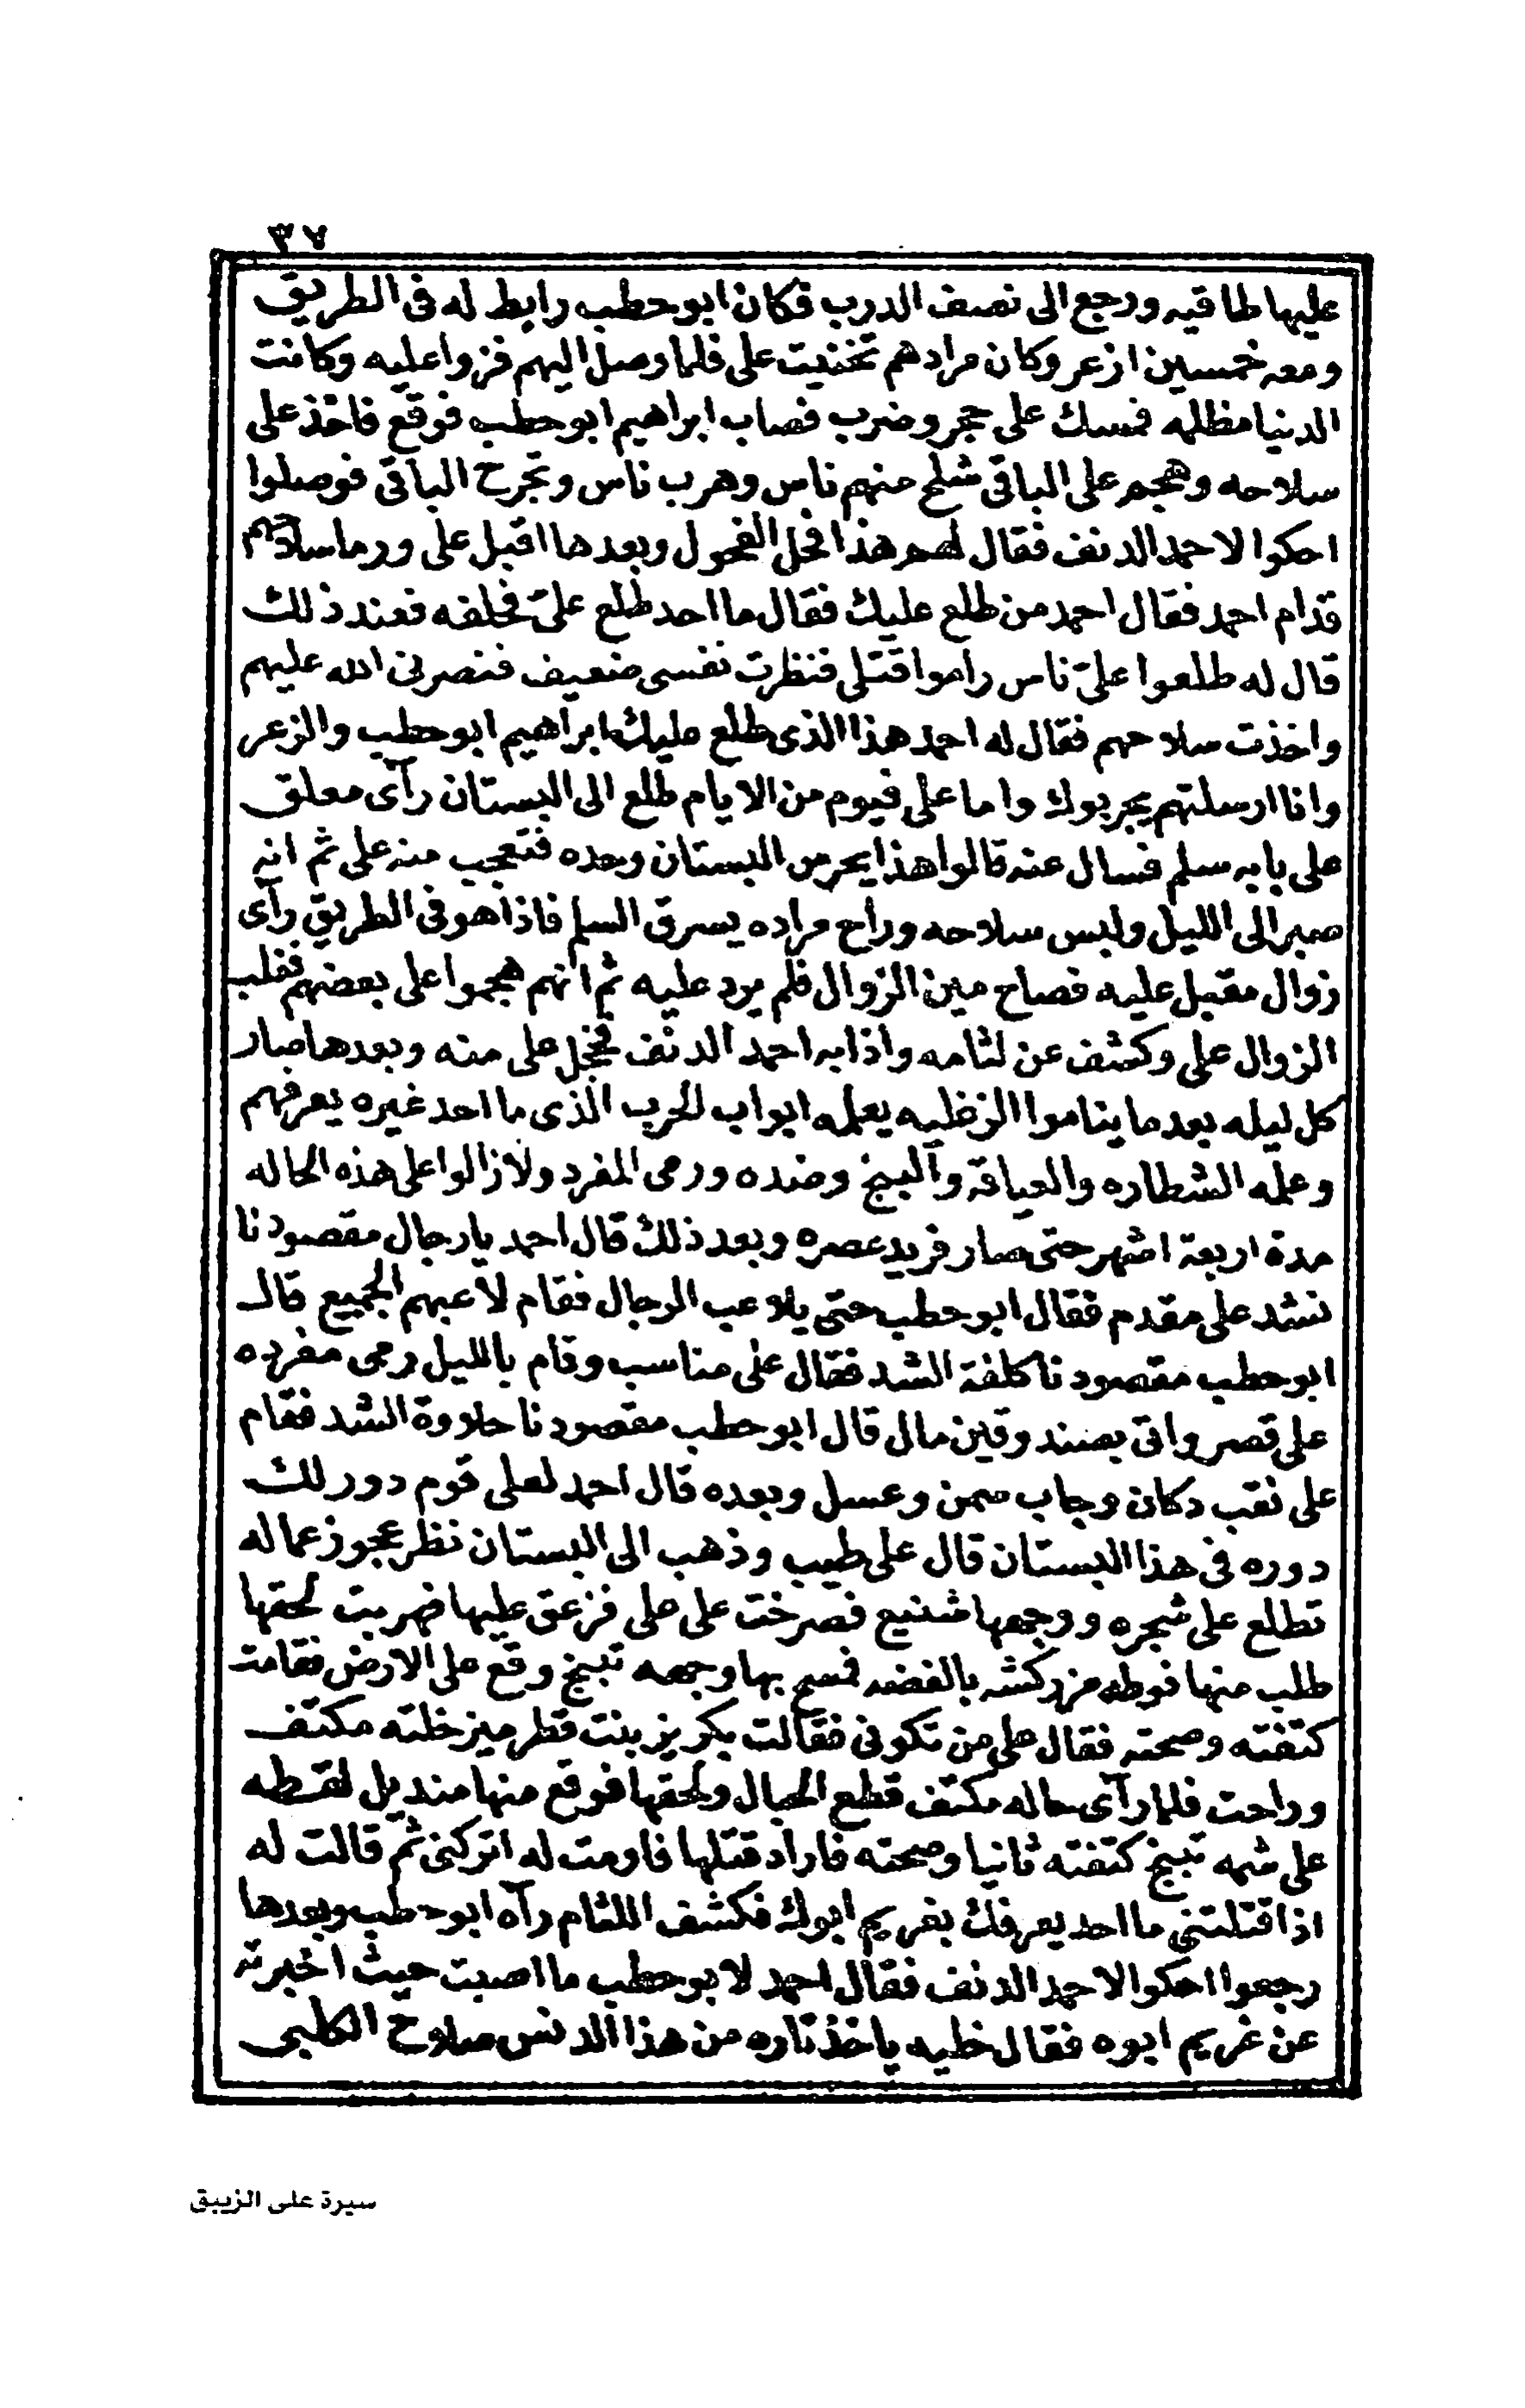 ٣٧
عليها طاقيه ورجع الى نصف الدرب فكان ابو حطب رابط له فى الطريق
ومعه خمسين ازعر وكان مرادهم تخنيت على فلما وصل اليهم فزوا عليه وكانت
الدنيا مظلمه فمسك على حجر وضرب فصاب ابراهيم ابو حطب فوقع فاخذ على
سلاحه وهجم على الباقى شلح منهم ناس وهرب ناس وتجرح الباقى فوصلوا
احكوا لاحمد الدنف فقال لهم هذا فحل الفحول وبعدها اقبل على ورما سلاحهم
قدام احمد فقال احمد من طلع عليك فقال ما احد طلع علىّ فحلفه فعند ذلك
قال له طلعوا علىّ ناس راموا قتلى فنظرت نفسى ضعيف فنصرنى الله عليهم
واخذت سلاحهم فقال له احمد هذا الذى طلع عليك ابراهيم ابو حطب والزعر
وانا ارسلتهم يجربوك واما على فيوم من الايام طلع الى البستان رآى معلق
على بابه سلم فسال عنه قالوا هذا يحرس البستان وحده فتعجب منه على ثم انه
صبر الى الليل ولبس سلاحه وراح مراده يسرق السلم فاذا هو فى الطريق رآى
زوال مقبل عليه فصاح مين الزوال فلم يرد عليه ثم انهم هجموا على بعضهم فغلب
الزوال على وكشف عن لثامه واذا به احمد الدنف فخجل على منه وبعدها صار
كل ليله بعد ما يناموا الزغليه يعلمه ابواب الحرب الذى ما احد غيره يعرفهم
وعلمه الشطاره والعياقة والبنج وضده ورمى المفرد ولازالوا على هذه الحاله
مدة اربعة اشهر حتى صار فريد عصره وبعد ذلك قال احمد يا رجال مقصودنا
نشد على مقدم فقال ابو حطب حتى يلاعب الرجال فقام لاعبهم الجميع قال
ابو حطب مقصودنا كلفة الشد فقال على مناسب وقام بالليل رمى مفرده
على قصر واتى بصندوقين مال قال ابو حطب مقصودنا حلاوة الشد فقام
على نقب دكان وجاب سمن وعسل وبعده قال احمد لعلى قوم دور لك
دوره فى هذا البستان قال على طيب وذهب الى البستان نظر عجوز عماله
تطلع على شجره ووجهها شنيع فصرخت على على فزعق عليها فهربت لحقها
طلب منها فوطه مزركشه بالفضه فمسح بها وجهه تبنج وقع على الارض فقامت
كتفته وصحته فقال على من تكونى فقالت بكريز بنت قطرميز خلته مكتف
وراحت فلما رآى حاله مكتف قطع الحبال ولحقها فوقع منها منديل لقطه
على شمه تبنج كتفته ثانيا وصحته فاراد قتلها فاومت له اتركنى ثم قالت له
اذا قتلتنى ما احد يعرفك بغريم ابوك فكشف اللثام رآه ابو حطب وبعدها
رجعوا احكوا لاحمد الدنف فقال احمد لابو حطب ما اصبت حيث اخبرته
عن غريم ابوه فقال خليه ياخذ تاره من هذا الدنس صلاح الكلبى
سيرة على الزيبق